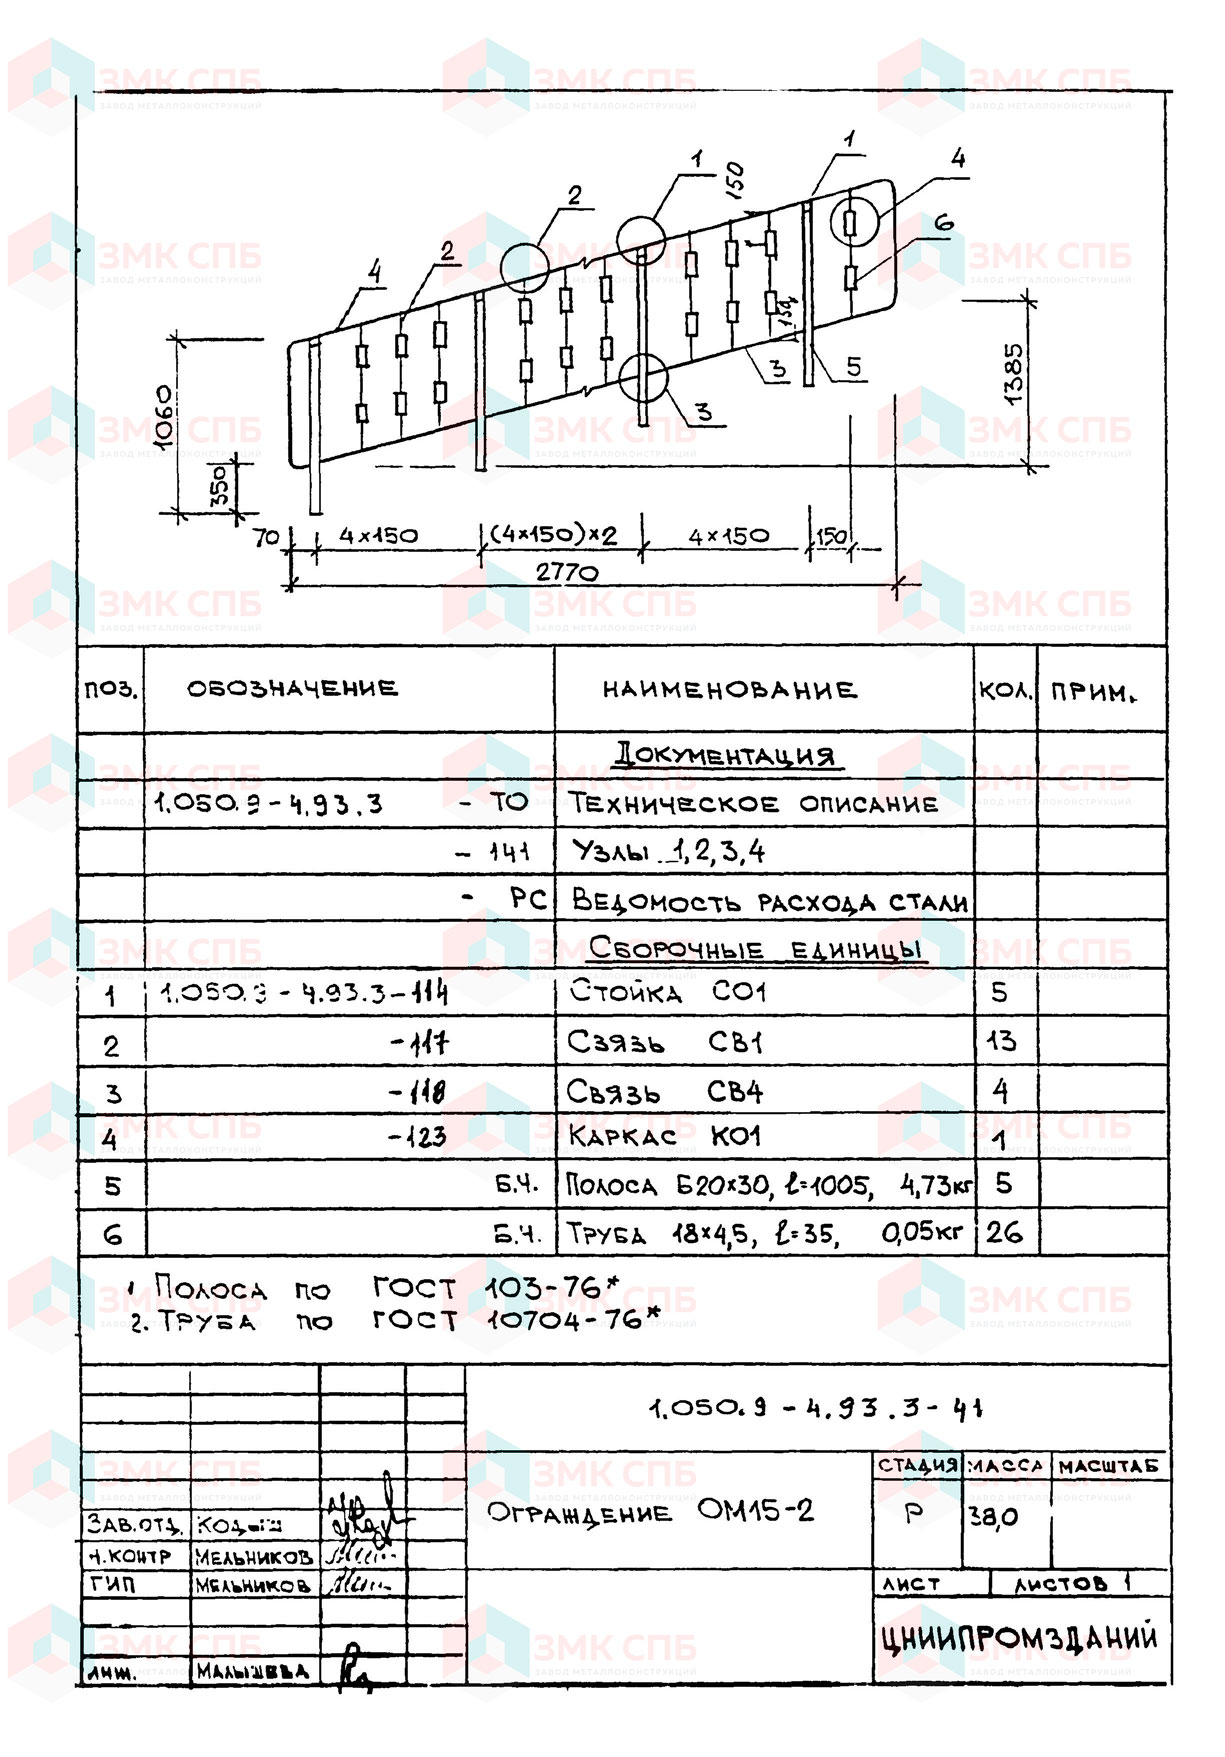 ЗМК СПБ
ЗАВОД МЕТАЛЛОКОНСТРУКЦИЙ
1
1
4
2
150
6
2
4
1060
350
150
3
5
3
1385
70
4×150
(4×150)×2
4×150
150
2770
ПОЗ. ОБОЗНАЧЕНИЕ НАИМЕНОВАНИЕ КОЛ. ПРИМ.
ДОКУМЕНТАЦИЯ
1.050.9-4.93.3 - ТО ТЕХНИЧЕСКОЕ ОПИСАНИЕ
- 141 УЗЛЫ 1,2,3,4
- РС ВЕДОМОСТЬ РАСХОДА СТАЛИ
СБОРОЧНЫЕ ЕДИНИЦЫ
1 1.050.9-4.93.3-114 СТОЙКА СО1 5
2 -117 СВЯЗЬ СВ1 13
3 -118 СВЯЗЬ СВ4 4
4 -123 КАРКАС КО1 1
5 Б.Ч. ПОЛОСА Б20×30, ℓ=1005, 4,73кг 5
6 Б.Ч. ТРУБА 18×4,5, ℓ=35, 0,05кг 26
1 ПОЛОСА ПО ГОСТ 103-76*
2. ТРУБА ПО ГОСТ 10704-76*
1.050.9-4.93.3-41
СТАДИЯ МАССА МАСШТАБ
ОГРАЖДЕНИЕ ОМ15-2 Р 38,0
ЗАВ.ОТД.
Н.КОНТР МЕЛЬНИКОВ
ГИП МЕЛЬНИКОВ
ЛИСТ ЛИСТОВ 1
ЦНИИПРОМЗДАНИЙ
ИНЖ. МАЛЫШЕВА